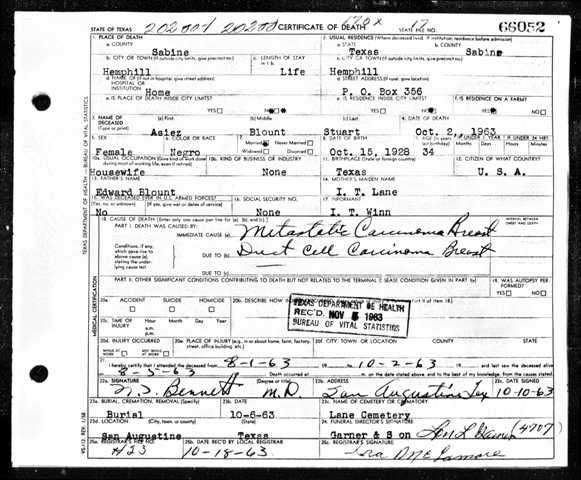 202001 20200 CERTIFICATE OF DEATH 17 66052
STATE OF TEXAS STATE FILE NO.
1. PLACE OF DEATH 2. USUAL RESIDENCE (Where deceased lived. If institution: residence before admission)
a. COUNTY a. STATE b. COUNTY
Sabine Texas Sabine
b. CITY OR TOWN (If outside city limits, give precinct no.) c. LENGTH OF STAY in 1 b c. CITY OR TOWN (If outside city limits, give precinct no.)
Hemphill Life Hemphill
d. NAME OF (If not in hospital, give street address) HOSPITAL OR INSTITUTION d. STREET ADDRESS (If rural, give location)
Home P. O. Box 356
e. IS PLACE OF DEATH INSIDE CITY LIMITS? e. IS RESIDENCE INSIDE CITY LIMITS? f. IS RESIDENCE ON A FARM?
YES NO YES NO YES NO
3. NAME OF DECEASED (a) First (b) Middle (c) Last 4. DATE OF DEATH
(Type or print) Asiez Blount Stuart Oct. 2, 1963
5. SEX 6. COLOR OR RACE 7. Married Never Married 8. DATE OF BIRTH IF UNDER 1 YEAR IF UNDER 24 HRS
Female Negro Widowed Divorced Oct. 15, 1928 34
10a. USUAL OCCUPATION (Give kind of work done during most of working life, even if retired) 10b. KIND OF BUSINESS OR INDUSTRY 11. BIRTHPLACE (State or foreign country) 12. CITIZEN OF WHAT COUNTRY?
Housewife None Texas U. S. A.
13. FATHER'S NAME 14. MOTHER'S MAIDEN NAME
Edward Blount I. T. Lane
15. WAS DECEASED EVER IN U.S. ARMED FORCES? 16. SOCIAL SECURITY NO. 17. INFORMANT
(Yes, no, or unknown) (If yes, give war or dates of service)
No None I. T. Winn
18. CAUSE OF DEATH [Enter only one cause per line for (a), (b), and (c).] INTERVAL BETWEEN ONSET AND DEATH
PART I. DEATH WAS CAUSED BY:
IMMEDIATE CAUSE (a) Metastatic Carcinoma Breast
Conditions, if any, which gave rise to above cause (a), stating the underlying cause last.
DUE TO (b) Duct Cell Carcinoma Breast
DUE TO (c)
PART II. OTHER SIGNIFICANT CONDITIONS CONTRIBUTING TO DEATH BUT NOT RELATED TO THE TERMINAL DISEASE CONDITION GIVEN IN PART I(a) 19. WAS AUTOPSY PERFORMED?
YES NO
20a. ACCIDENT SUICIDE HOMICIDE 20b. DESCRIBE HOW
TEXAS DEPARTMENT OF HEALTH
REC'D. NOV 5 1963
BUREAU OF VITAL STATISTICS
20c. TIME OF INJURY Hour Month Day Year
a.m.
p.m.
20d. INJURY OCCURRED 20e. PLACE OF INJURY (e.g., in or about home, farm, factory, street, office building, etc.) 20f. CITY, TOWN, OR LOCATION COUNTY STATE
WHILE AT WORK NOT WHILE AT WORK
21. I hereby certify that I attended the deceased from 8-1-63 10-2-63
8-5-63 Death occurred at
22a. SIGNATURE (Degree or title) 22b. ADDRESS 22c. DATE SIGNED
Bennett M.D. San Augustine Tex 10-10-63
23a. BURIAL, CREMATION, REMOVAL (Specify) 23b. DATE 23c. NAME OF CEMETERY OR CREMATORY
Burial 10-6-63 Lane Cemetery
23d. LOCATION (City, town, or county) (State) 24. FUNERAL DIRECTOR'S SIGNATURE
San Augustine Texas Garner & Son (4707)
25a. REGISTRAR'S FILE NO. 25b. DATE REC'D BY LOCAL REGISTRAR 25c. REGISTRAR'S SIGNATURE
#23 10-18-63
TEXAS DEPARTMENT OF HEALTH BUREAU OF VITAL STATISTICS
MEDICAL CERTIFICATION